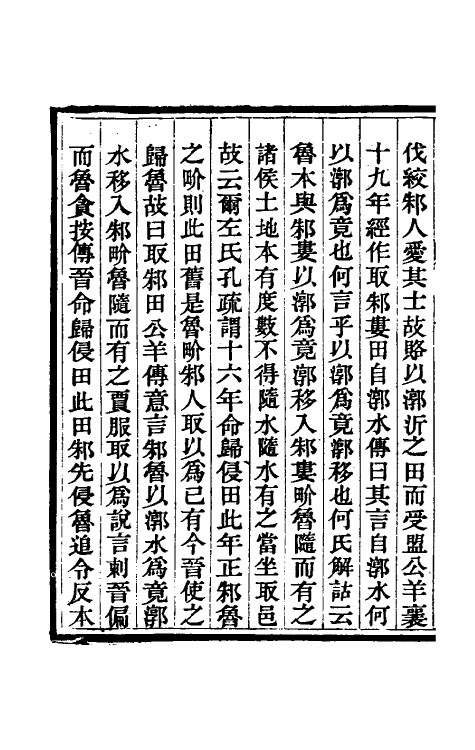 伐絞邾人愛其士故賂以漷沂之田而受盟公羊襄
十九年經作取邾婁田自漷水傳曰其言自漷水何
以漷爲竟也何言乎以漷爲竟漷移也何氏解詁云
魯本與邾婁以漷爲竟漷移入邾婁畍魯隨而有之
諸侯土地本有度數不得隨水隨水有之當坐取邑
故云爾左氏孔疏謂十六年命歸侵田此年正邾魯
之畍則此田舊是魯畍邾人取以爲己有今晉使之
歸魯故曰取邾田公羊傳意言邾魯以漷水爲竟漷
水移入邾畍魯隨而有之賈服取以爲說言刺晉偏
而魯貪按傳晉命歸侵田此田邾先侵魯追令反本